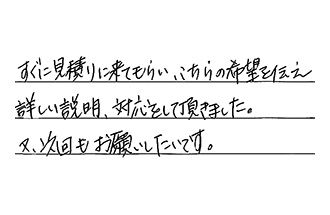 すぐに見積りに来てもらい、こちらの希望を伝え
詳しい説明、対応をして頂きました。
又、次回もお願いしたいです。